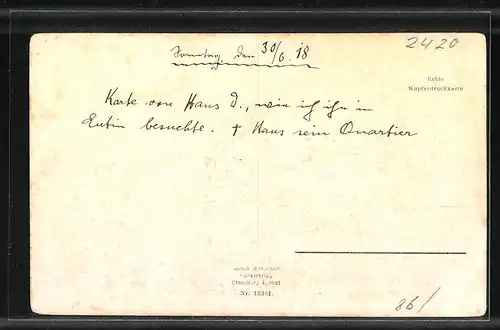 Sonntag, den 30/6. 18
2420
Echte
Kupferdruckkarte
Karte von Hans D., wie ich ihn in
Eutin besuchte. + Hans sein Quartier
Kunstverlag
Oldenburg i. Holst
Nr. 13361.
86/